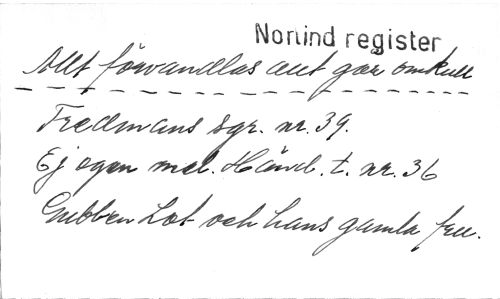 Norlind register
Allt förvandlas allt går omkull
Fredmans sgr. nr. 39.
Ej egen mel. Hänv. t. nr. 36
Gubben Lot och hans gamla fru.